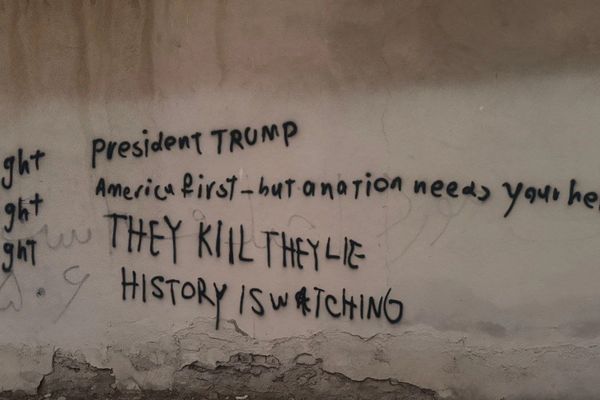 ght President TRUMP
ght America first - but a nation needs your he
ght THEY KILL THEY LIE
HISTORY IS WATCHING